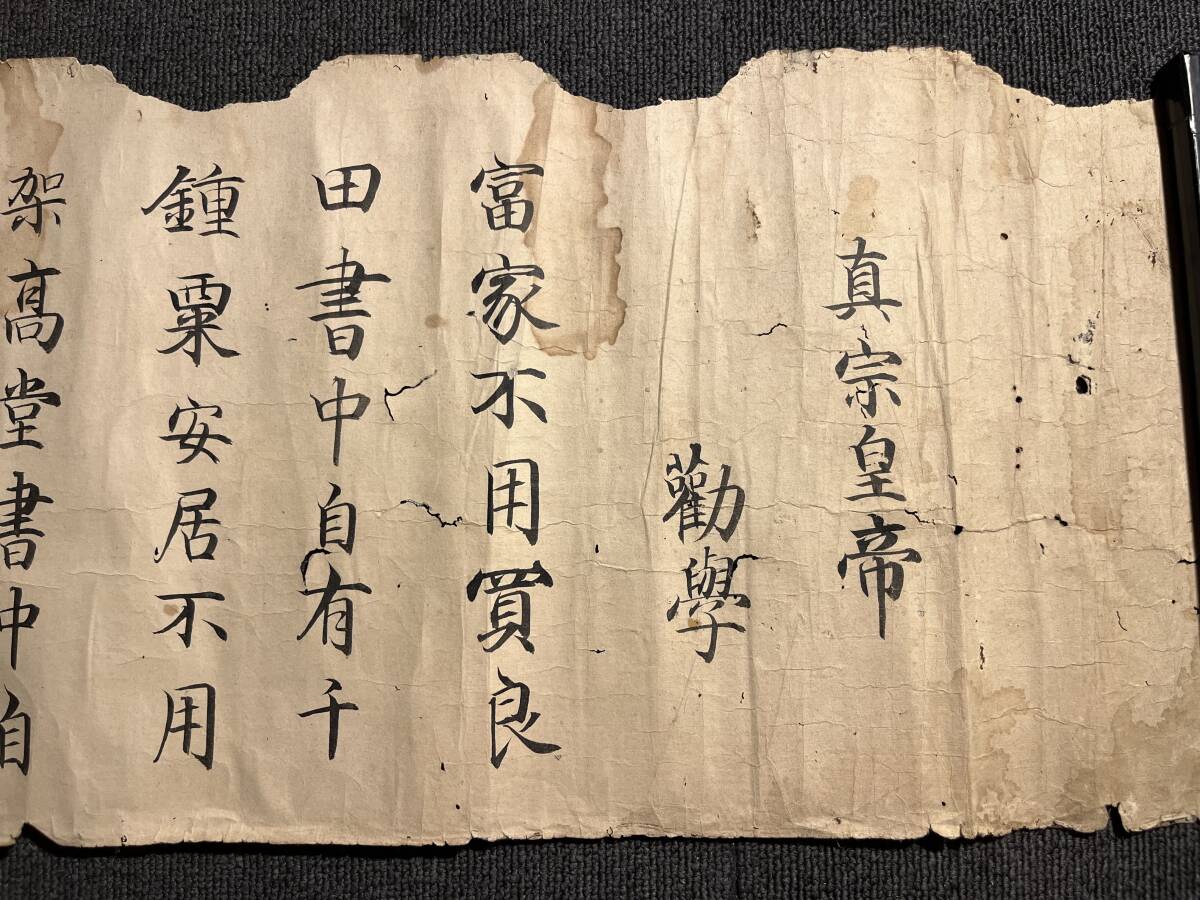 真宗皇帝
勸學
富家不用買良
田書中自有千
鍾粟安居不用
架高堂書中自